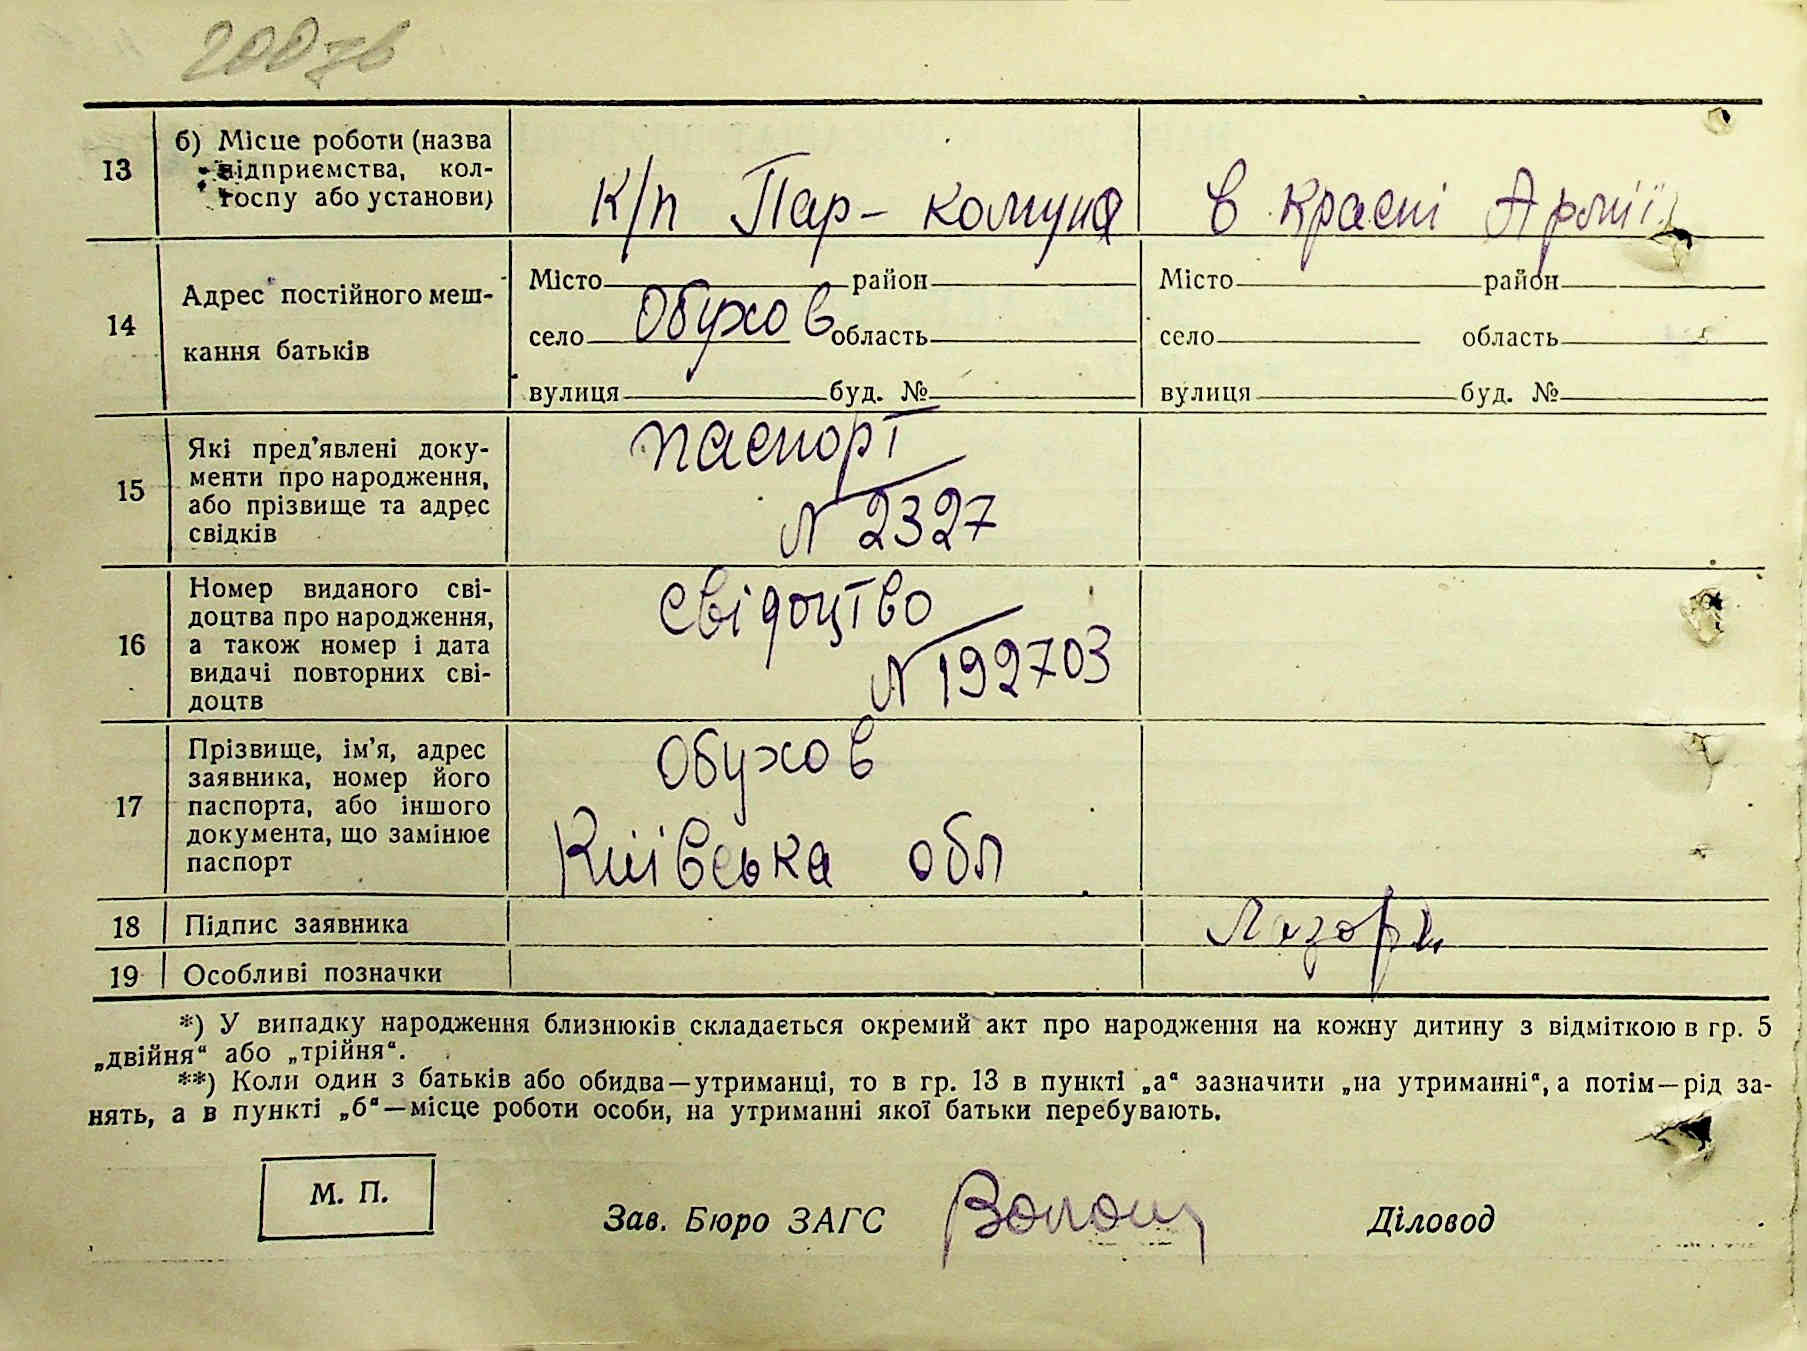 200 зв
13
б) Місце роботи (назва
відприємства, кол-
госпу або установи)
К/п Пар-комуна
в Красні Армії
14
Адрес постійного меш-
кання батьків
Місто район
село Обухов область
вулиця буд. №
Місто район
село область
вулиця буд. №
15
Які пред'явлені доку-
менти про народження,
або прізвище та адрес
свідків
паспорт
N 2327
16
Номер виданого сві-
доцтва про народження,
а також номер і дата
видачі повторних сві-
доцтв
свідоцтво
N 192703
17
Прізвище, ім'я, адрес
заявника, номер його
паспорта, або іншого
документа, що замінює
паспорт
Обухов
Київська обл
18
Підпис заявника
19
Особливі позначки
*) У випадку народження близнюків складається окремий акт про народження на кожну дитину з відміткою в гр. 5
„двійня“ або „трійня“.
**) Коли один з батьків або обидва—утриманці, то в гр. 13 в пункті „а“ зазначити „на утриманні“, а потім—рід за-
нять, а в пункті „б“—місце роботи особи, на утриманні якої батьки перебувають.
М. П.
Зав. Бюро ЗАГС
Діловод